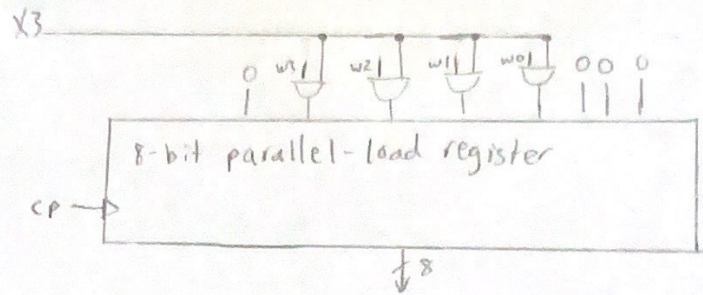 X3
0 w3 w2 w1 w0 0 0 0
8-bit parallel-load register
CP
8